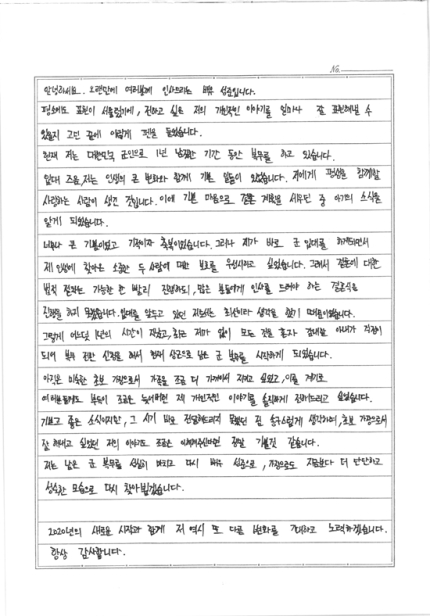 No.
안녕하세요. 오랜만에 여러분께 인사드리는 배우 성준입니다.
평소에도 표현이 서툴렀기에, 전하고 싶은 저의 개인적인 이야기를 얼마나 잘 표현해낼 수
있을지 고민 끝에 이렇게 펜을 들었습니다.
현재 저는 대한민국 군인으로 1년 남짓한 기간 동안 복무를 하고 있습니다.
입대 즈음, 저는 인생의 큰 변화와 함께 기쁜 일들이 있었습니다. 저에게 평생을 함께할
사랑하는 사람이 생긴 것입니다. 이에 기쁜 마음으로 결혼 계획을 세우던 중 아기의 소식을
알게 되었습니다.
너무나 큰 기쁨이었고 기적이자 축복이었습니다. 그러나 제가 바로 군 입대를 하게되면서
제 인생에 찾아온 소중한 두 사람에 대한 보호를 우선시하고 싶었습니다. 그래서 결혼에 대한
법적 절차는 가능한 한 빨리 진행하되, 많은 분들에게 인사를 드려야 하는 결혼식을
진행을 하지 못했습니다. 입대를 앞두고 있던 저로서는 최선이라 생각을 했기 때문이었습니다.
그렇게 어느덧 1년의 시간이 지났고, 최근 저마 없이 모든 것을 혼자 감내할 아내가 걱정이
되어 복무 전환 신청을 해서 현재 상근으로 남은 군 복무를 시작하게 되었습니다.
아직은 미숙한 초보 가장으로서 가족을 조금 더 가까이서 지키고 싶었고, 이를 계기로
여러분들에게도 부득이 조금은 늦어버린 제 개인적인 이야기를 솔직하게 전해드리고 싶었습니다.
기쁘고 좋은 소식이지만, 그 시기 바로 전달하드리지 못했던 점 송구스럽게 생각하며, 초보 가장으로서
잘 해내고 싶었던 저의 이야기도 조금은 이해해주신다면 정말 기쁠것 같습니다.
저는 남은 군 복무를 성실히 마치고 다시 배우 성준으로, 가장으로도 지금보다 더 단단하고
성숙한 모습으로 다시 찾아뵙겠습니다.
2020년의 새로운 시작과 함께 저 역시 또 다른 변화를 기대하고 노력하겠습니다.
항상 감사합니다.